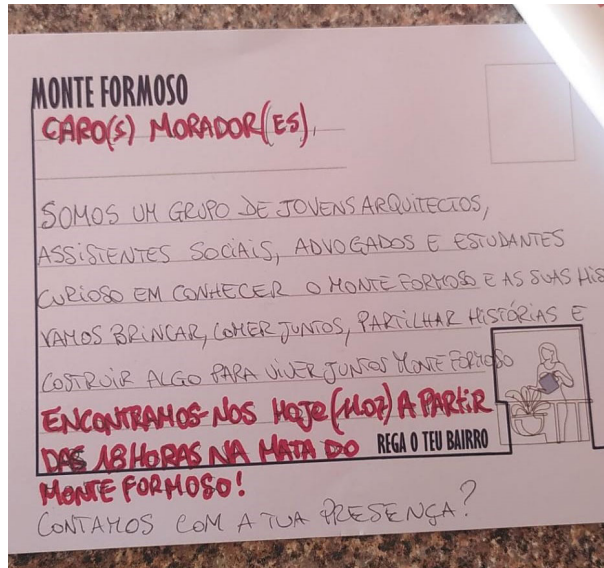 MONTE FORMOSO
CARO(S) MORADOR(ES),
SOMOS UM GRUPO DE JOVENS ARQUITECTOS,
ASSISTENTES SOCIAIS, ADVOGADOS E ESTUDANTES
CURIOSO EM CONHECER O MONTE FORMOSO E AS SUAS HIS
VAMOS BRINCAR, COMER JUNTOS, PARTILHAR HISTÓRIAS E
COSTRUIR ALGO PARA VIVER JUNTOS MONTE FORMOSO
ENCONTRAMOS-NOS HOJE (11.07) A PARTIR
DAS 18 HORAS NA MATA DO
REGA O TEU BAIRRO
MONTE FORMOSO!
CONTAMOS COM A TUA PRESENÇA?